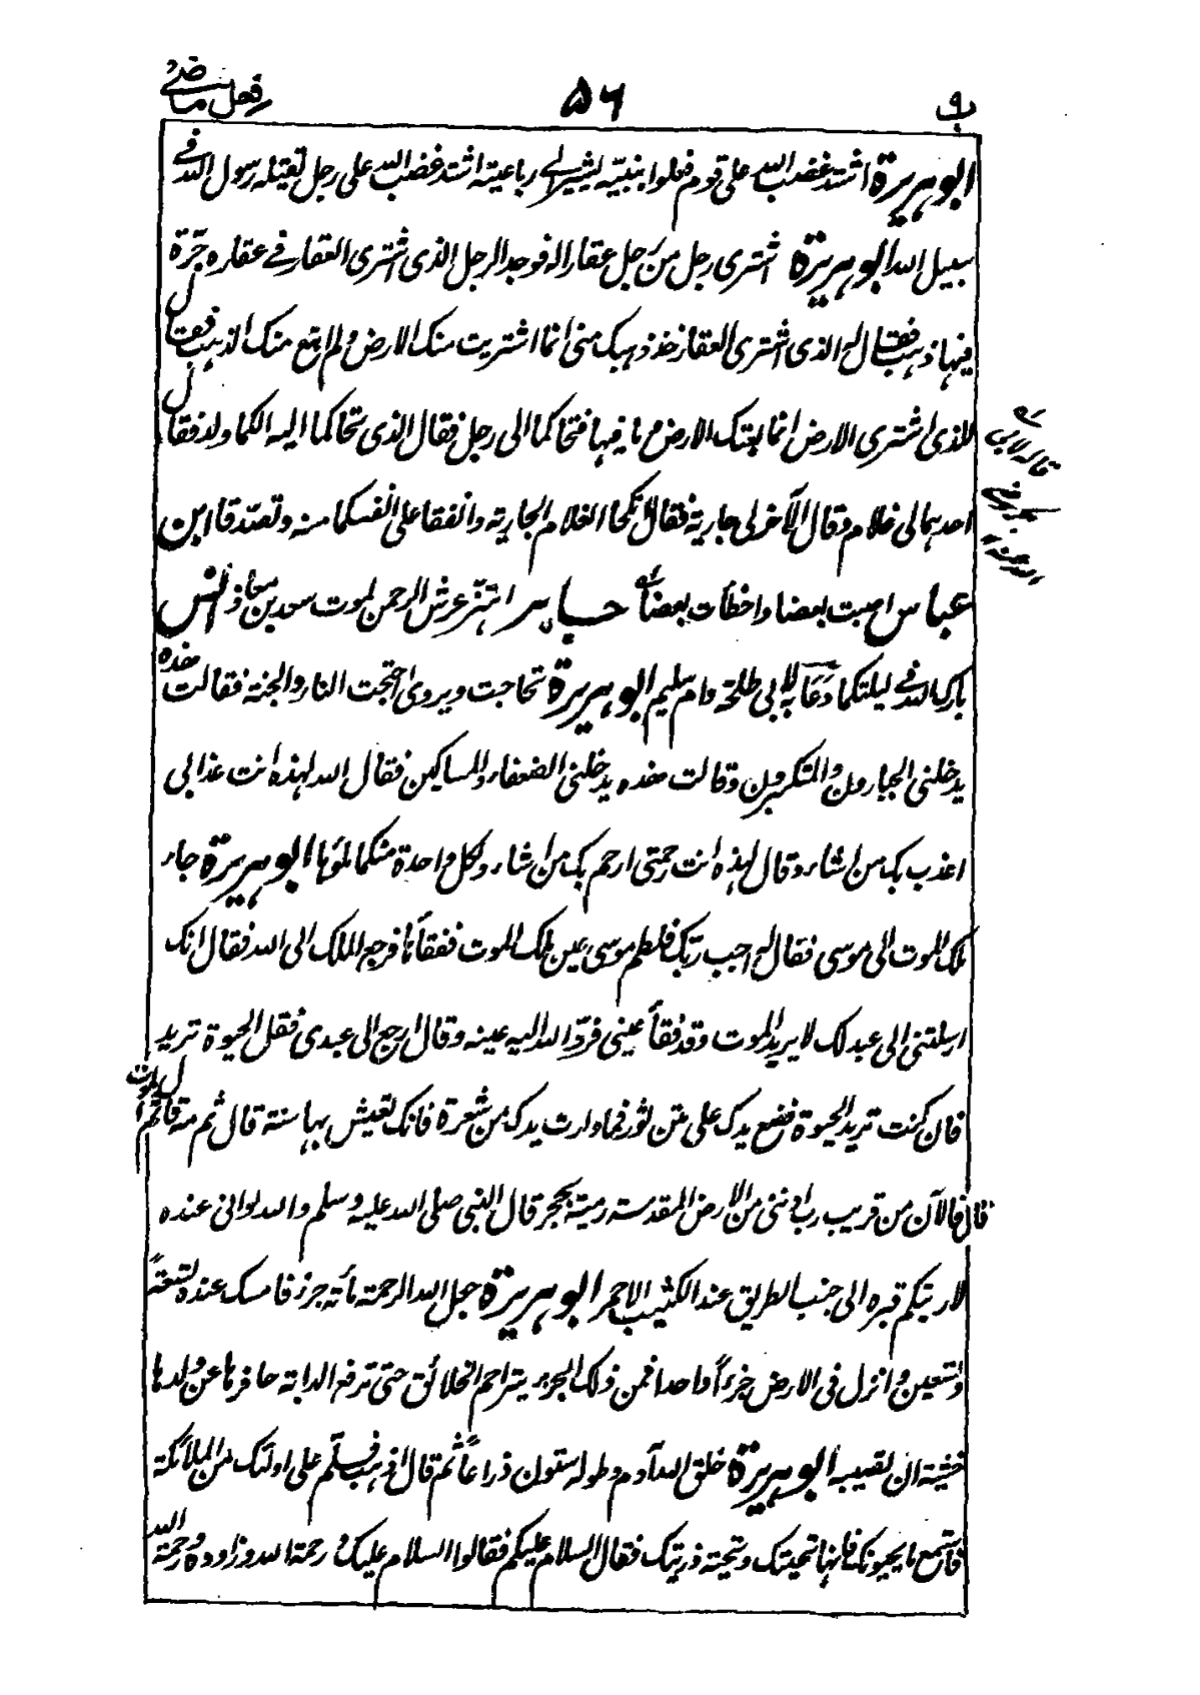 ب ٩
٥٦
فعل ماضي
ابو هريرة اشتد غضب الله على قوم فعلوا بنبيه يشير الى رباعيته اشتد غضب الله على رجل يقتله رسول الله في
سبيل الله ابو هريرة اشترى رجل من رجل عقارا له فوجد الرجل الذى اشترى العقار في عقاره جرّة
فيها ذهب فقال له الذى اشترى العقار خذ ذهبك منى انما اشتريت منك الارض ولم ابتع منك الذهب فقال
للذى اشترى الارض انما بعتك الارض وما فيها فتحاكما الى رجل فقال الذى تحاكما اليه الكما ولد فقال
احدهما لى غلام وقال الآخر لى جارية فقال انكحا الغلام الجارية وانفقا على انفسكما منه وتصدقا ابن
عباس اصبت بعضا واخطأت بعضا جابر اهتز عرش الرحمن لموت سعد بن معاذ انس
بارك الله في ليلتكما دعا به لابي طلحة وام سليم ابو هريرة تحاجت ويروى احتجت النار والجنة فقالت هذه
يدخلنى الجبارون والمتكبرون وقالت هذه يدخلنى الضعفاء والمساكين فقال الله لهذه انت عذابى
اعذب بك من اشاء وقال لهذه انت رحمتى ارحم بك من اشاء ولكل واحدة منكما ملؤها ابو هريرة جاء
ملك الموت الى موسى فقال له اجب ربك فلطم موسى عين ملك الموت ففقأها فرجع الملك الى الله فقال انك
ارسلتنى الى عبد لك لا يريد الموت وقد فقأ عينى فردّ الله اليه عينه وقال ارجع الى عبدى فقل الحيوة تريد
فان كنت تريد الحيوة فضع يدك على متن ثور فما وارت يدك من شعرة فانك تعيش بها سنة قال ثم مه قال ثم الموت
قال فالآن من قريب رب ادننى من الارض المقدسة رمية بحجر قال النبى صلى الله عليه وسلم والله لو انى عنده
لاريتكم قبره الى جنب الطريق عند الكثيب الاحمر ابو هريرة جعل الله الرحمة مأته جزء فامسك عنده تسعةً
وتسعين وانزل فى الارض جزءاً واحدا فمن ذلك الجزء يتراحم الخلائق حتى ترفع الدابة حافرها عن ولدها
خشية ان تصيبه ابو هريرة خلق الله آدم وطوله ستون ذراعاً ثم قال اذهب فسلّم على اولئك من الملائكة
فاستمع ما يحيونك فانها تحيتك وتحية ذريتك فقال السلام عليكم فقالوا السلام عليك ورحمة الله وزادوه ورحمة الله
قاله لابي
بكر رضي
الله عنه